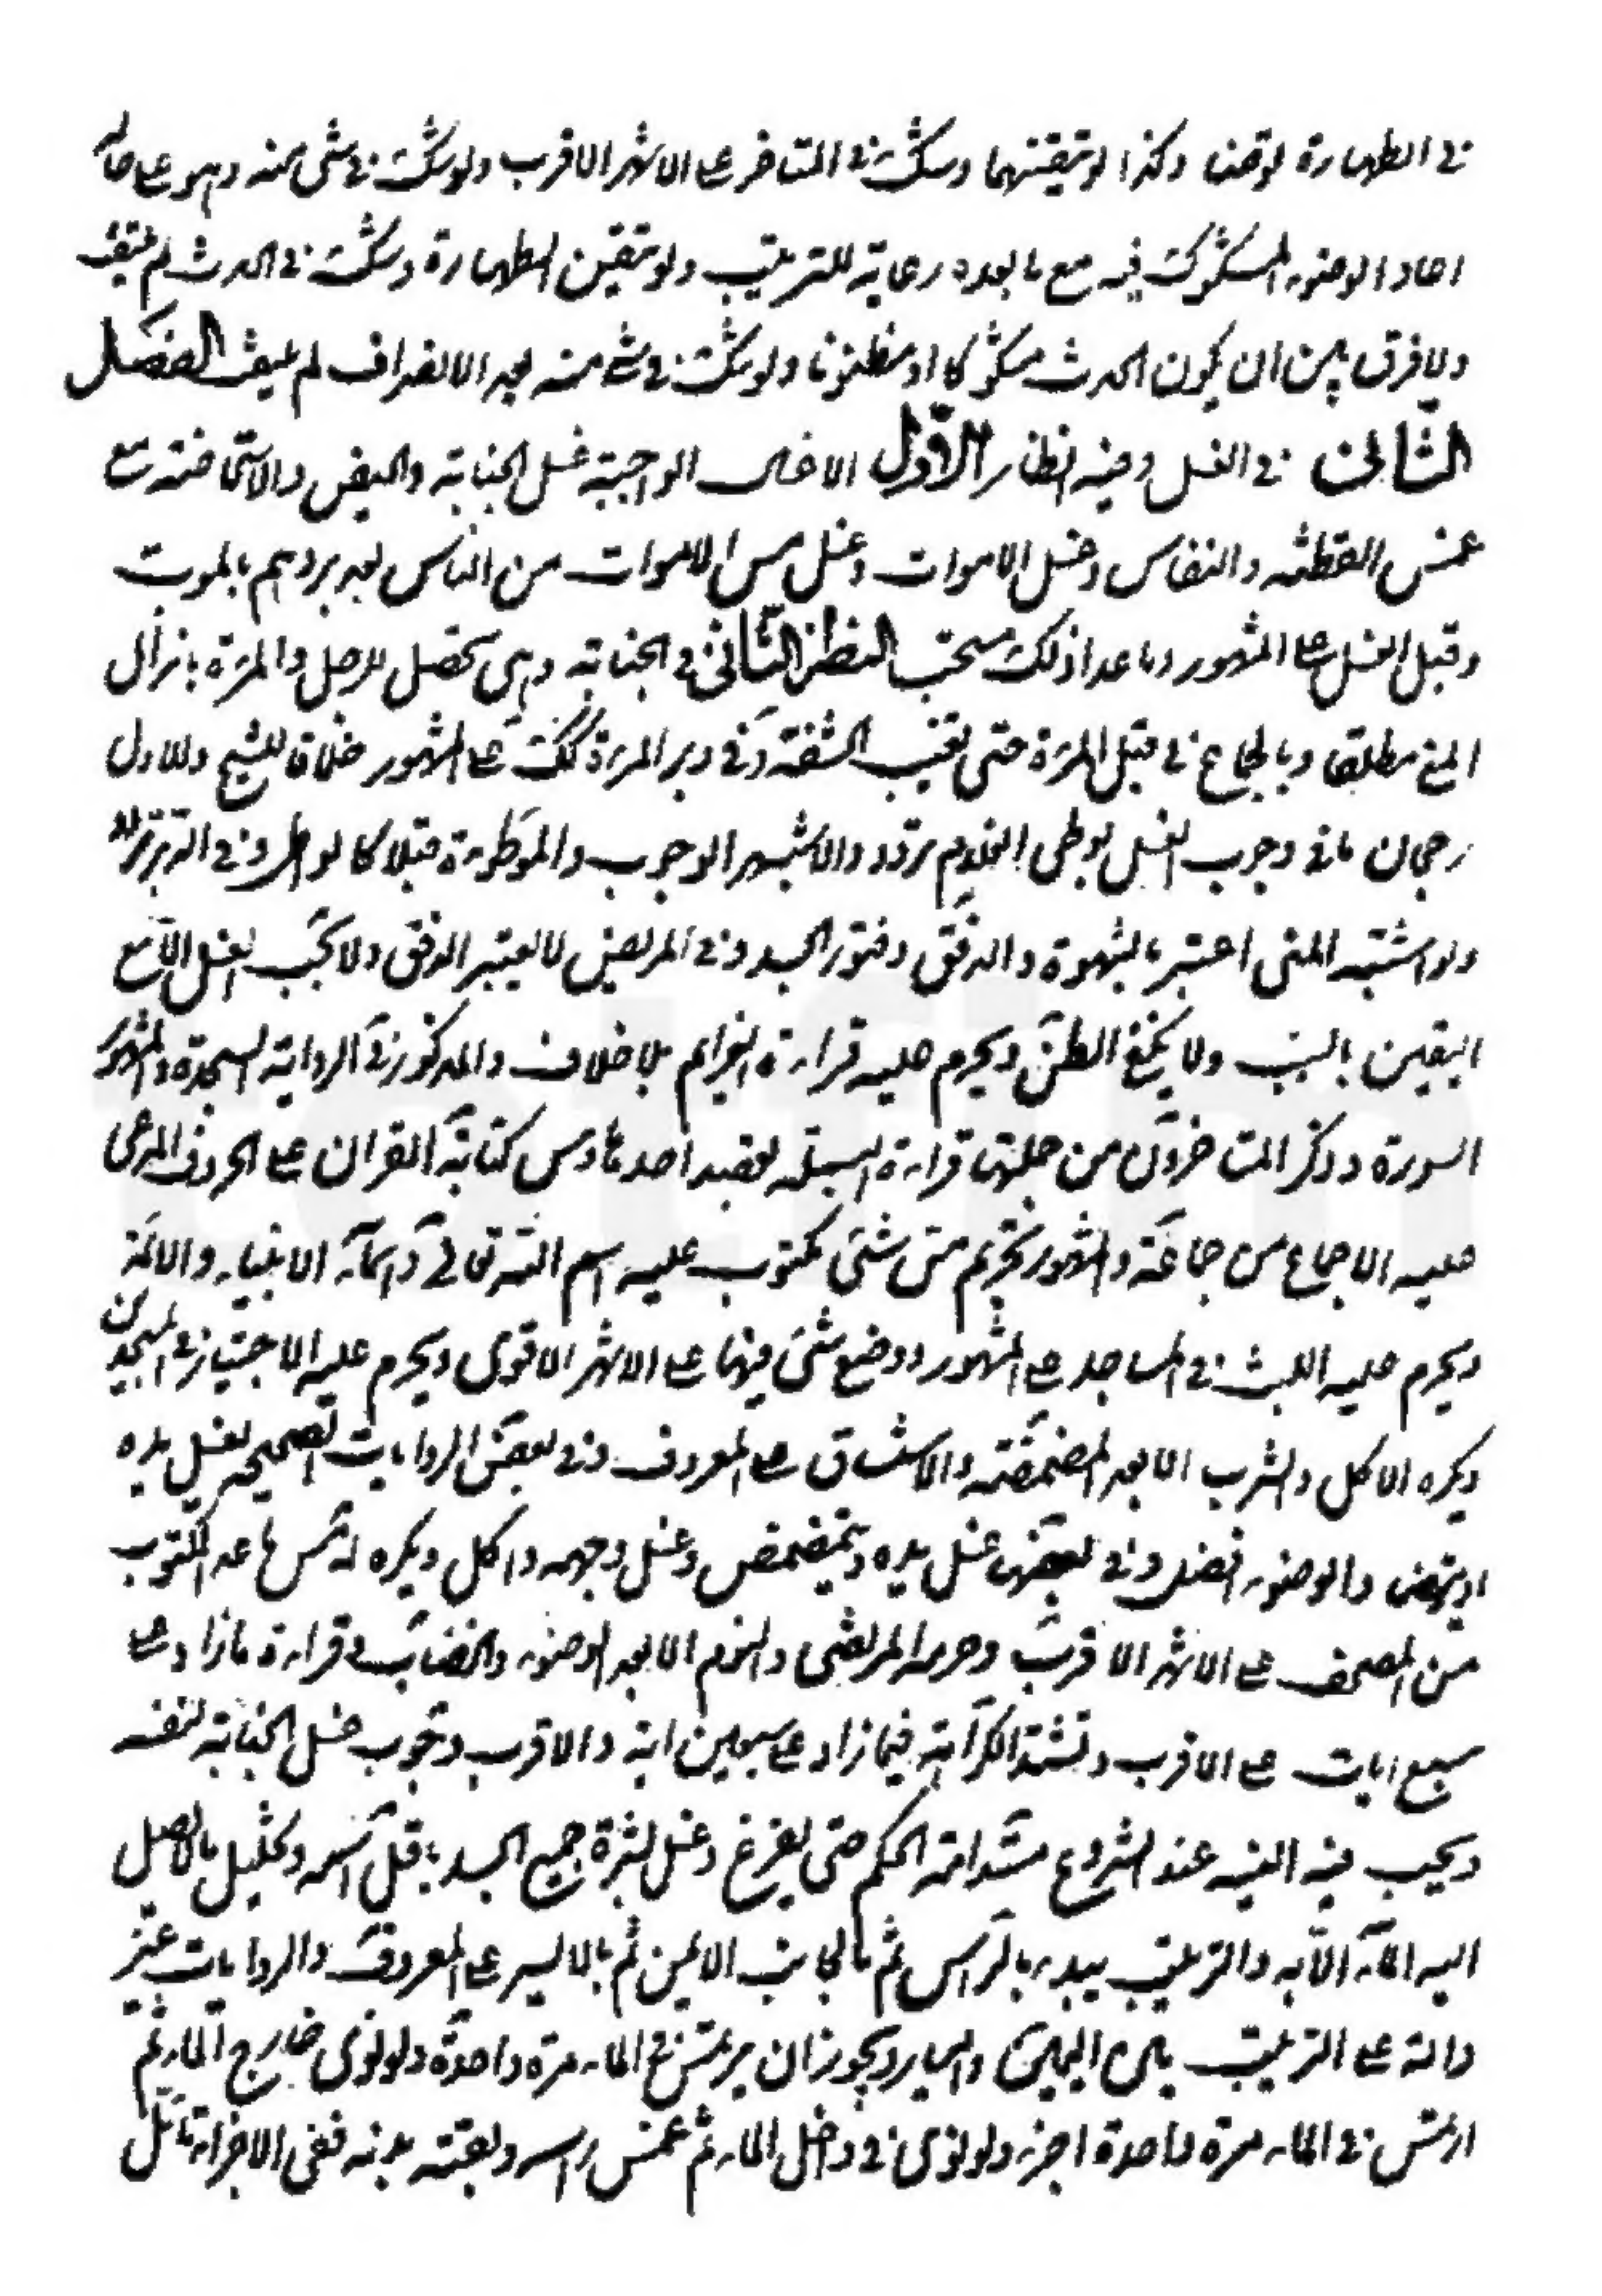 في الطهارة توضا وكذا لو تيقنهما وشك في المتاخر على الاشهر الاقرب ولو شك في شئ منه وهو على حاله
اعاد الوضوء المشكوك فيه مع ما بعده رعاية للترتيب ولو تيقن الطهارة وشك في الحدث لم يلتفت
ولا فرق بين ان يكون الحدث مشكوكا او مظنونا ولو شك في شئ منه بعد الانصراف لم يلتفت الفصل
الثاني في الغسل وفيه انظار الاول الاغسال الواجبة غسل الجنابة والحيض والاستحاضة مع
غمس القطنة والنفاس وغسل الاموات وغسل مس الاموات من الناس بعد بردهم بالموت
وقبل الغسل على المشهور وما عدا ذلك مستحب النظر الثاني في الجنابة وهي تحصل للرجل والمرءة بانزال
المني مطلقا وبالجماع في قبل المرءة حتى تغيب الحشفة وفي دبر المرءة كك على المشهور خلافا للشيخ وللاول
رجحان ما وفي وجوب الغسل بوطى الغلام تردد والاشهر الوجوب والموطوءة قبلا كالواطى وفي الدبر تردد
ولو اشتبه المني اعتبر بالشهوة والدفق وفتور الجسد وفي المريض لا يعتبر الدفق ولا يجب الغسل الا مع
اليقين بالسبب ولا يكفي الظن ويحرم عليه قراءة العزايم بلا خلاف والمذكور في الرواية السجدة والمشهور
السورة وذكر المتاخرون من جملتها قراءة البسملة بقصد احدها ومس كتابة القران على المعروف المدعى
عليه الاجماع من جماعة والمشهور تحريم مس شئ مكتوب عليه اسم الله تعالى واسماء الانبياء والائمة
ويحرم عليه اللبث في المساجد على المشهور ووضع شئ فيها على الاشهر الاقوى ويحرم عليه الاجتياز في المسجدين
ويكره الاكل والشرب الا بعد المضمضة والاستنشاق على المعروف وفي بعض الروايات الصحيحة يغسل يده
او يتوضا والوضوء افضل وفي بعضها غسل يده وتمضمض وغسل وجهه واكل ويكره له مس ما عدا المكتوب
من المصحف على الاشهر الاقرب وحرمه المرتضى والنوم الا بعد الوضوء والخضاب وقراءة ما زاد على
سبع ايات على الاقرب وتشتد الكراهة فيما زاد على سبعين اية والاقرب وجوب غسل الجنابة لنفسه
ويجب فيه النية عند الشروع مستدامة الحكم حتى يفرغ وغسل بشرة جميع الجسد باقل اسمه وتخليل ما لا يصل
اليه الماء الا به والترتيب يبدء بالراس ثم بالجانب الايمن ثم بالايسر على المعروف والروايات غير
دالة على الترتيب بين اليمين واليسار ويجوز ان يرتمس في الماء مرة واحدة ولو نوى خارج الماء ثم
ارتمس في الماء مرة واحدة اجزء ولو نوى في داخل الماء ثم غمس راسه وبقية بدنه ففي الاجزاء تامل